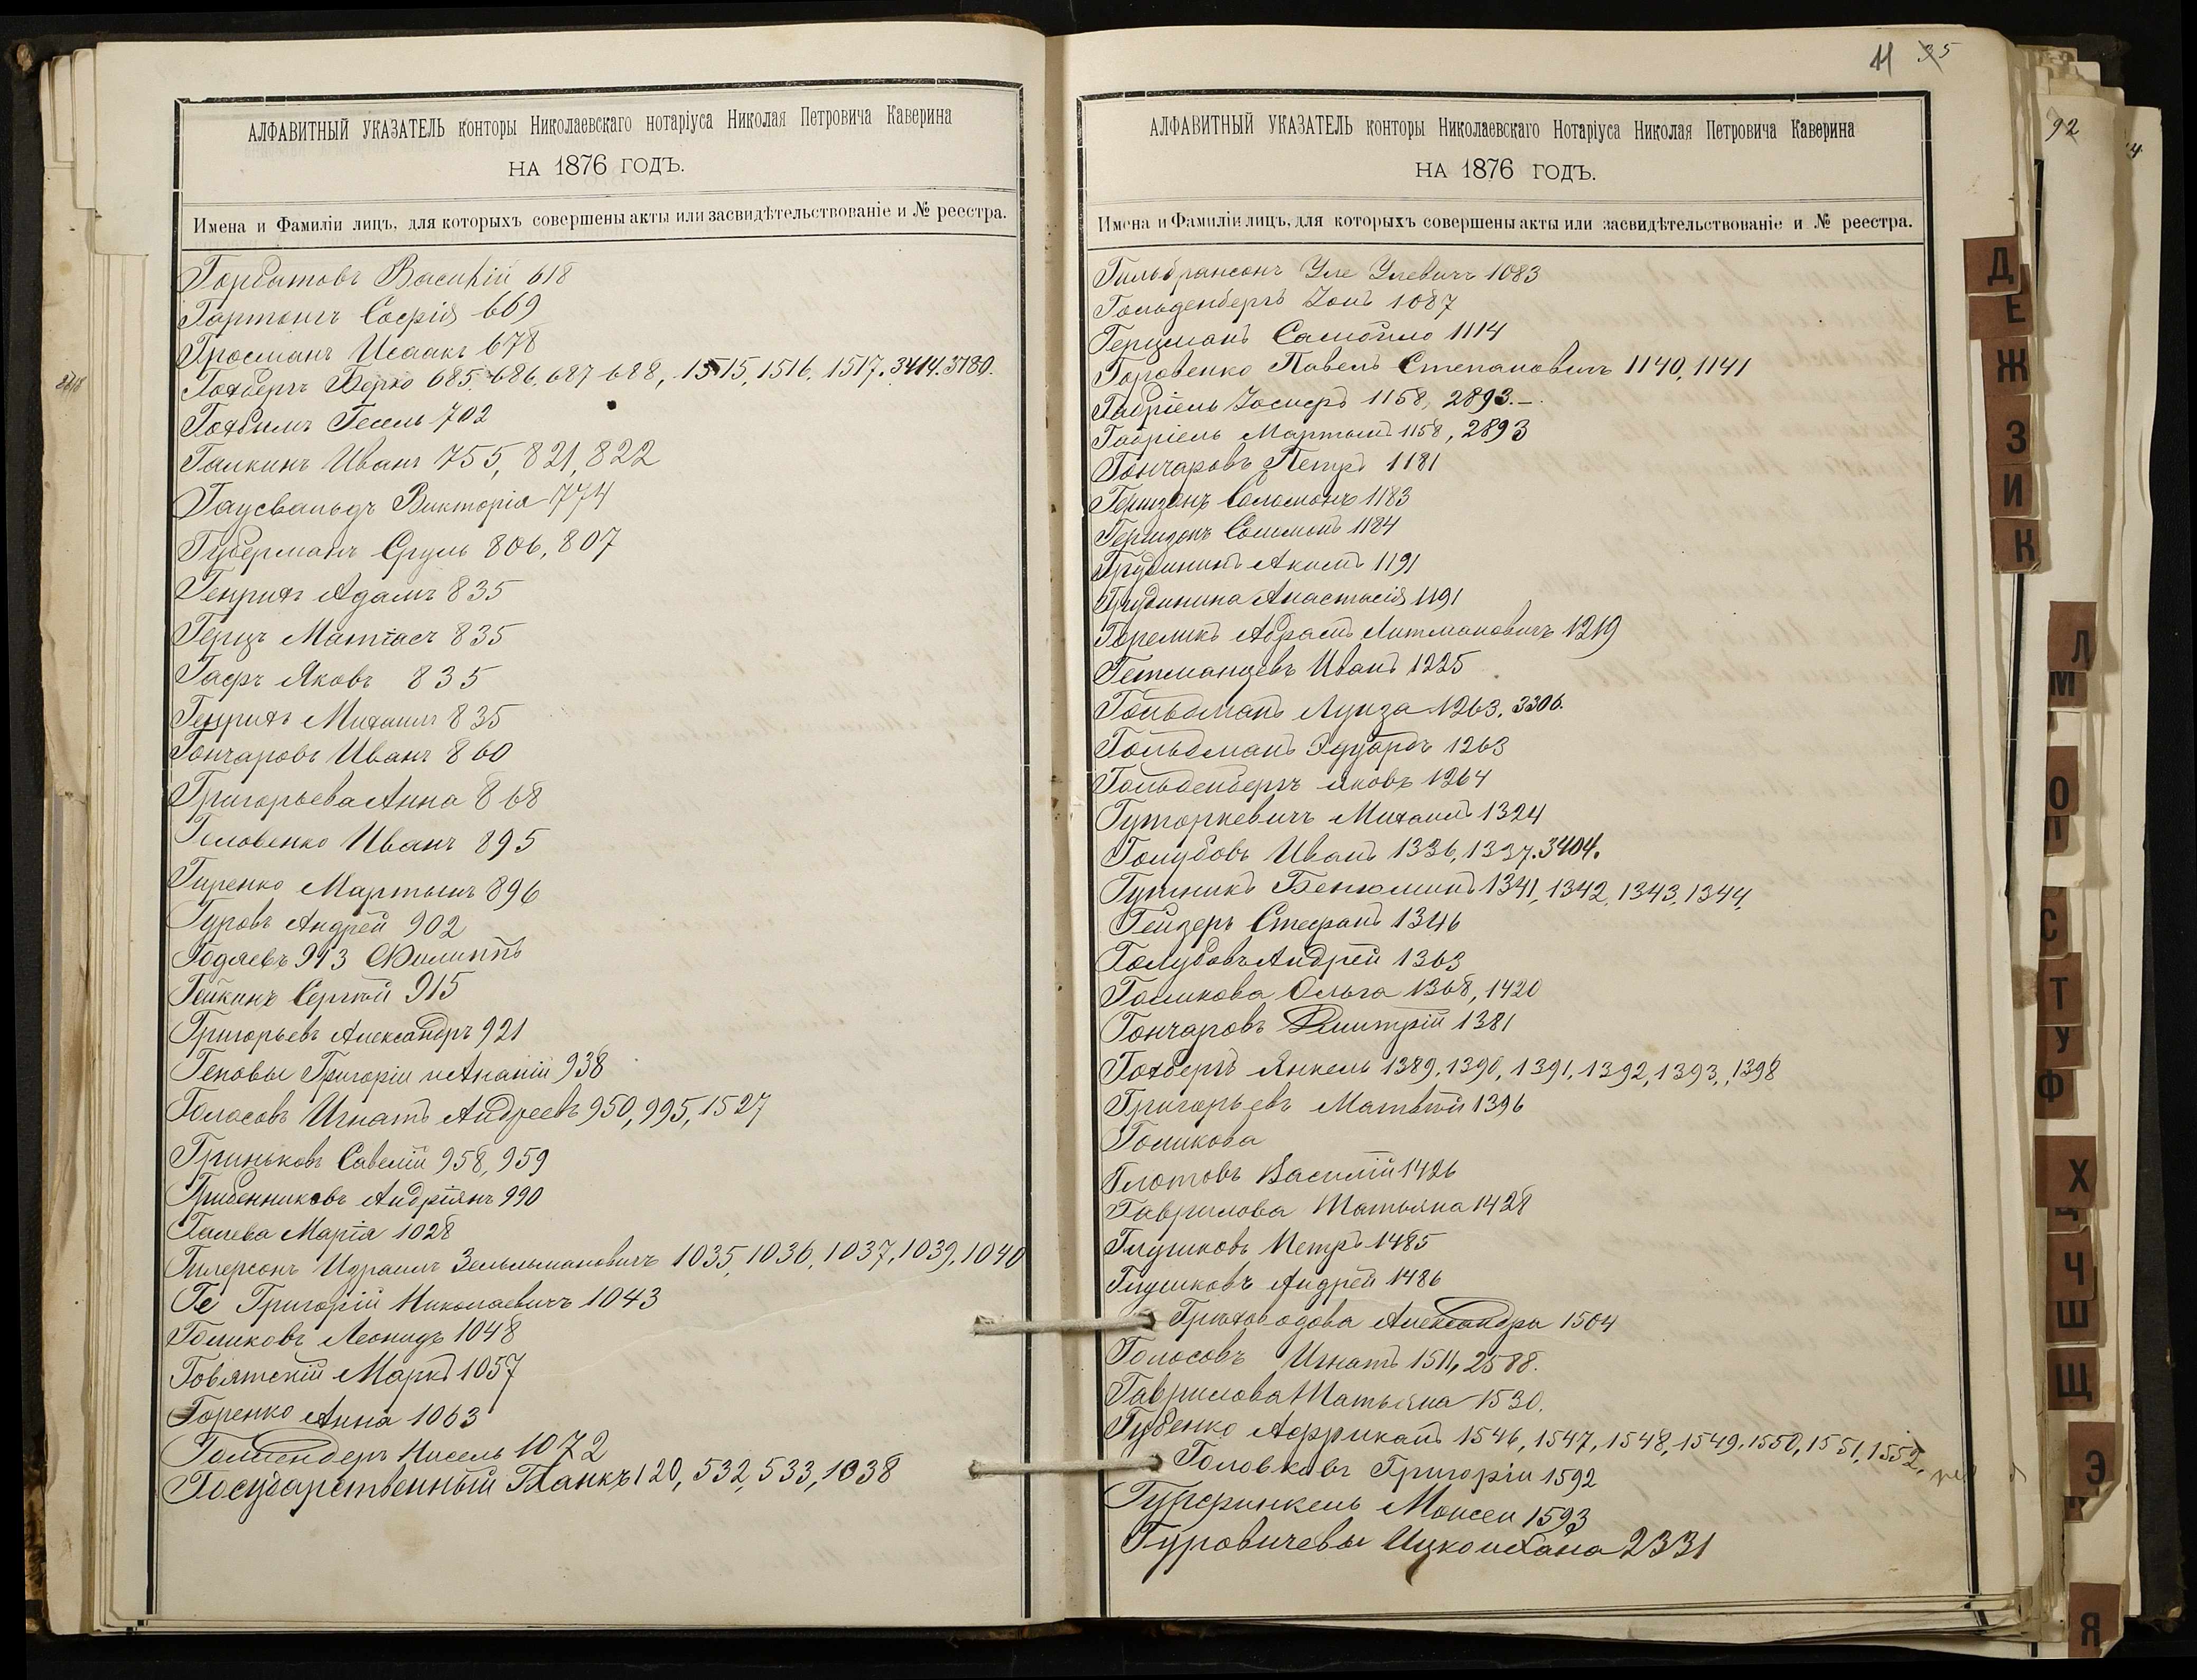 АЛФАВИТНЫЙ УКАЗАТЕЛЬ конторы Николаевскаго нотаріуса Николая Петровича Каверина
НА 1876 ГОДЪ.
Имена и Фамиліи лицъ, для которыхъ совершены акты или засвидѣтельствованіе и № реестра.
Горбатовъ Василій 618
Гортонгъ Софія 669
Гросманъ Исаакъ 678
Гохбергъ Берко 685, 686, 687 688, 1515, 1516, 1517. 3414. 3780.
Гохбитъ Гесель 702
Галкинъ Иванъ 755, 821, 822
Гаусвальдъ Викторія 774
Губерманъ Сруль 806, 807
Генрихъ Адамъ 835
Герцъ Матіасъ 835
Гафъ Яковъ 835
Генрихъ Михаилъ 835
Гончаровъ Иванъ 860
Григорьева Анна 868
Головенко Иванъ 895
Гиренко Мартынъ 896
Гуровъ Андрей 902
Годяевъ 913 Филиппъ
Гейкинъ Сергѣй 915
Григорьевъ Александръ 921
Геновы Григорій и Ананій 938
Голосовъ Игнатъ Андреевъ 950, 995, 1527
Гриньковъ Савелій 958, 959
Гребенниковъ Андріянъ 990
Галева Марія 1028
Гилерсонъ Израиль Зельмановичъ 1035, 1036, 1037, 1039, 1040
Ге Григорій Николаевичъ 1043
Голиковъ Леонидъ 1048
Говятскій Маркъ 1057
Горенко Анна 1063
Голлендеръ Нисель 1072
Государственный Банкъ 120, 532, 533, 1038
11 35
АЛФАВИТНЫЙ УКАЗАТЕЛЬ конторы Николаевскаго Нотаріуса Николая Петровича Каверина
НА 1876 ГОДЪ.
Имена и Фамиліи лицъ, для которыхъ совершены акты или засвидѣтельствованіе и № реестра.
Гильбрансонъ Уле Улевичъ 1083
Гольденбергъ Іонъ 1087
Герцманъ Самойло 1114
Горовенко Павелъ Степановичъ 1140, 1141
Габріель Іосифъ 1158, 2893.
Габріель Мартынъ 1158, 2893
Гончаровъ Петръ 1181
Гершзонъ Соломонъ 1183
Гершзонъ Соломонъ 1184
Грудининъ Акимъ 1191
Грудинина Анастасія 1191
Гореликъ Абрамъ Литмановичъ 1219
Гетманцевъ Иванъ 1225
Гольдманъ Луиза 1263. 3306.
Гольдманъ Эдуардъ 1263
Гольденбергъ Яковъ 1264
Гуторкевичъ Михаилъ 1324
Голубовъ Иванъ 1336, 1337. 3404.
Гутникъ Бенюминъ 1341, 1342, 1343, 1344,
Гейзеръ Стефанъ 1346
Голубовъ Андрей 1363
Голикова Ольга 1368, 1420
Гончаровъ Дмитрій 1381
Гохбергъ Янкель 1389, 1390, 1391, 1392, 1393, 1398
Григорьевъ Матвѣй 1396
Голикова
Глотовъ Василій 1426
Гаврилова Татьяна 1428
Глушковъ Петръ 1485
Глушковъ Андрей 1486
Грязоводова Александра 1504
Голосовъ Игнатъ 1511, 2588.
Гаврилова Татьяна 1530.
Губенко Африканъ 1546, 1547, 1548, 1549, 1550, 1551, 1552,
Головковъ Григорій 1592
Гурфинкель Моисей 1593
Гуровичевы Ицко и Хана 2331
92
Д
Е
Ж
З
И
К
Л
М
О
П
С
Т
У
Ф
Х
Ц
Ч
Ш
Щ
Э
Я